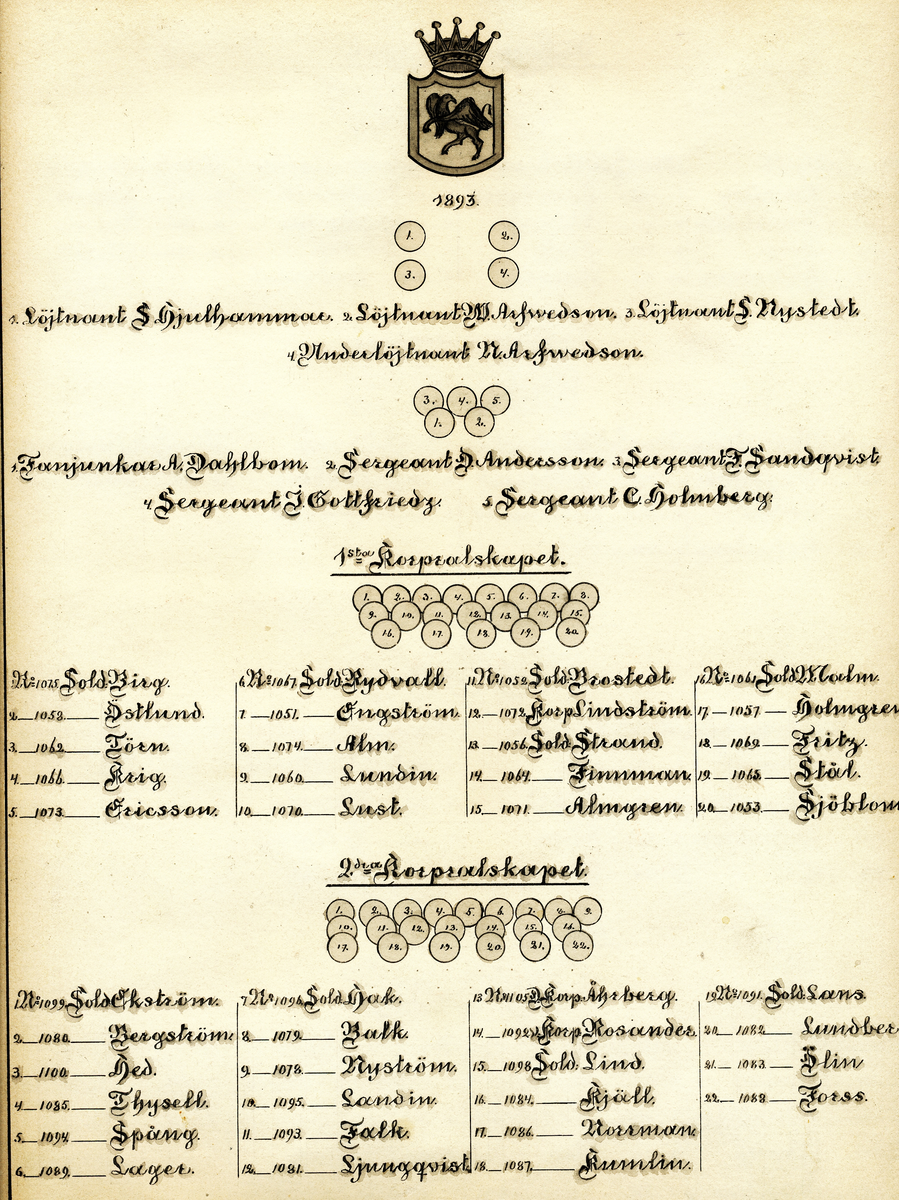 1893.
1. 2.
3. 4.
1. Löjtnant S. Hjulhammar. 2. Löjtnant W. Arfwedson. 3. Löjtnant S. Nystedt.
4. Underlöjtnant N. Arfwedson.
3. 4. 5.
1. 2.
1. Fanjunkar A. Dahlbom. 2. Sergeant D. Andersson. 3. Sergeant F. Sandqvist.
4. Sergeant J. Gottfriedz. 5. Sergeant C. Holmberg.
1sta Korpralskapet.
1. 2. 3. 4. 5. 6. 7. 8.
9. 10. 11. 12. 13. 14. 15.
16. 17. 18. 19. 20.
1. No 1075. Sold. Birg. 6. No 1067. Sold. Rydvall. 11. No 1052. Sold. Brostedt. 16. No 1061. Sold. Malm.
2. 1058. Östlund. 7. 1051. Engström. 12. 1072. Korp. Lindström. 17. 1057. Holmgren
3. 1062. Törn. 8. 1074. Alm. 13. 1056. Sold. Strand. 18. 1069. Fritz.
4. 1066. Krig. 9. 1060. Lundin. 14. 1064. Finnman. 19. 1065. Stål.
5. 1073. Ericsson. 10. 1070. Lust. 15. 1071. Almgren. 20. 1053. Sjöblom
2dra Korpralskapet.
1. 2. 3. 4. 5. 6. 7. 8. 9.
10. 11. 12. 13. 14. 15. 16.
17. 18. 19. 20. 21. 22.
1. No 1099. Sold. Ekström. 7. No 1096. Sold. Hak. 13. No 1105. Korp. Åhrberg. 19. No 1091. Sold. Lans.
2. 1080. Bergström. 8. 1079. Balk. 14. 1092. Korp. Rosander. 20. 1082. Lundber
3. 1100. Hed. 9. 1078. Nyström. 15. 1098. Sold. Lind. 21. 1083. Elin
4. 1085. Thysell. 10. 1095. Landin. 16. 1084. Kjäll. 22. 1088. Forss.
5. 1094. Spång. 11. 1093. Falk. 17. 1086. Norrman.
6. 1089. Lager. 12. 1081. Ljungqvist. 18. 1087. Kumlin.